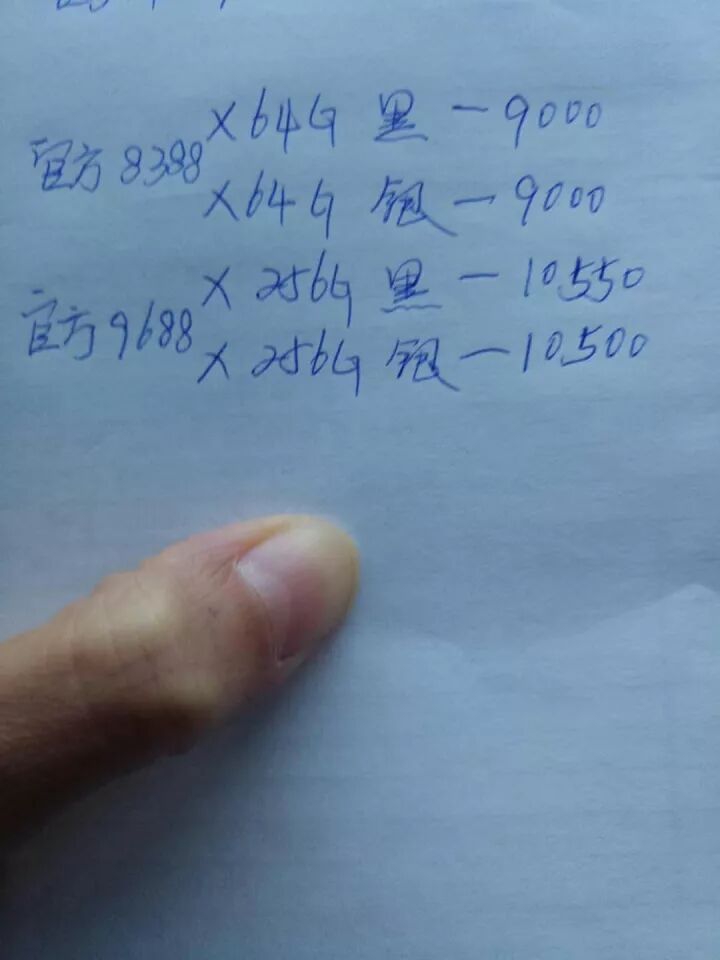 官方8388
X64G 黑 — 9000
X64G 银 — 9000
官方9688
X 256G 黑 — 10550
X 256G 银 — 10500